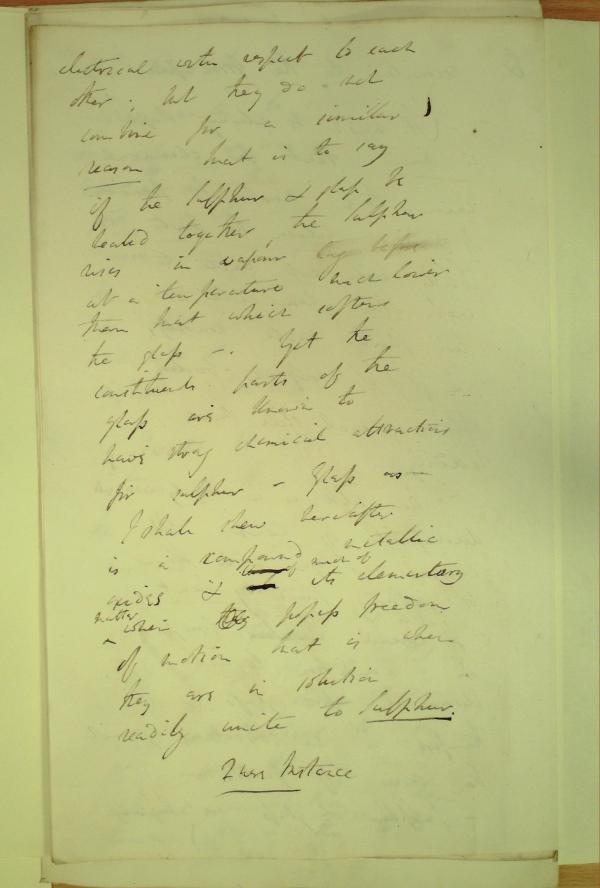 electrical with respect to each
other; but they do not
combine for a similar
reason that is to say
if the Sulphur & glass be
heated together, the Sulphur
rises in vapour long before
at a temperature much lower
than that which softens
the glass –. Yet the
constituent parts of the
glass are known to
have strong chemical attractions
for sulphur – Glass as
I shall shew hereafter
is a compound of metallic
oxides & much of its elementary
matter when they possess freedom
of motion that is when
they are in solution
readily unite to Sulphur.
Instance